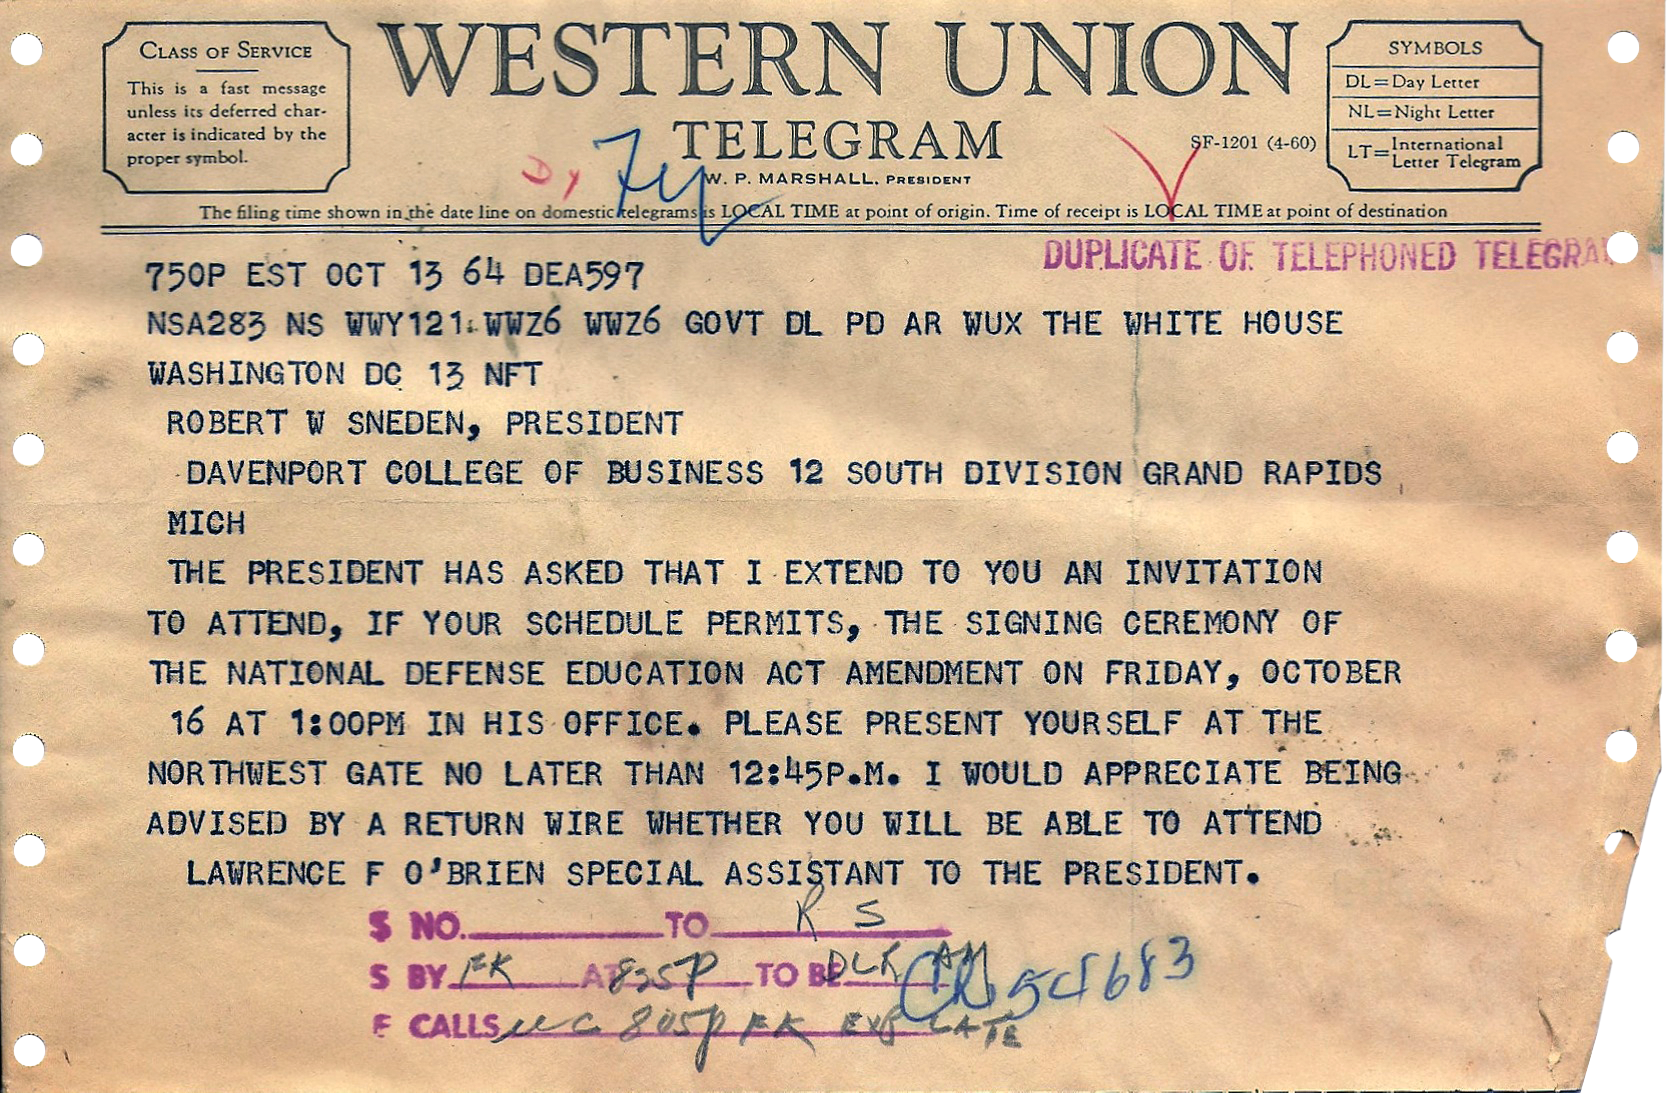 CLASS OF SERVICE
This is a fast message
unless its deferred char-
acter is indicated by the
proper symbol.
WESTERN UNION
TELEGRAM
W. P. MARSHALL, PRESIDENT
SF-1201 (4-60)
SYMBOLS
DL=Day Letter
NL=Night Letter
LT=International
Letter Telegram
The filing time shown in the date line on domestic telegrams is LOCAL TIME at point of origin. Time of receipt is LOCAL TIME at point of destination
DUPLICATE OF TELEPHONED TELEGRAM
750P EST OCT 13 64 DEA597
NSA283 NS WWY121 WWZ6 WWZ6 GOVT DL PD AR WUX THE WHITE HOUSE
WASHINGTON DC 13 NFT
ROBERT W SNEDEN, PRESIDENT
DAVENPORT COLLEGE OF BUSINESS 12 SOUTH DIVISION GRAND RAPIDS
MICH
THE PRESIDENT HAS ASKED THAT I EXTEND TO YOU AN INVITATION
TO ATTEND, IF YOUR SCHEDULE PERMITS, THE SIGNING CEREMONY OF
THE NATIONAL DEFENSE EDUCATION ACT AMENDMENT ON FRIDAY, OCTOBER
16 AT 1:00PM IN HIS OFFICE. PLEASE PRESENT YOURSELF AT THE
NORTHWEST GATE NO LATER THAN 12:45P.M. I WOULD APPRECIATE BEING
ADVISED BY A RETURN WIRE WHETHER YOU WILL BE ABLE TO ATTEND
LAWRENCE F O'BRIEN SPECIAL ASSISTANT TO THE PRESIDENT.
S NO. TO R S
S BY FK AT 835P TO BE DLR AM
54683
F CALLS 805P FK LATE